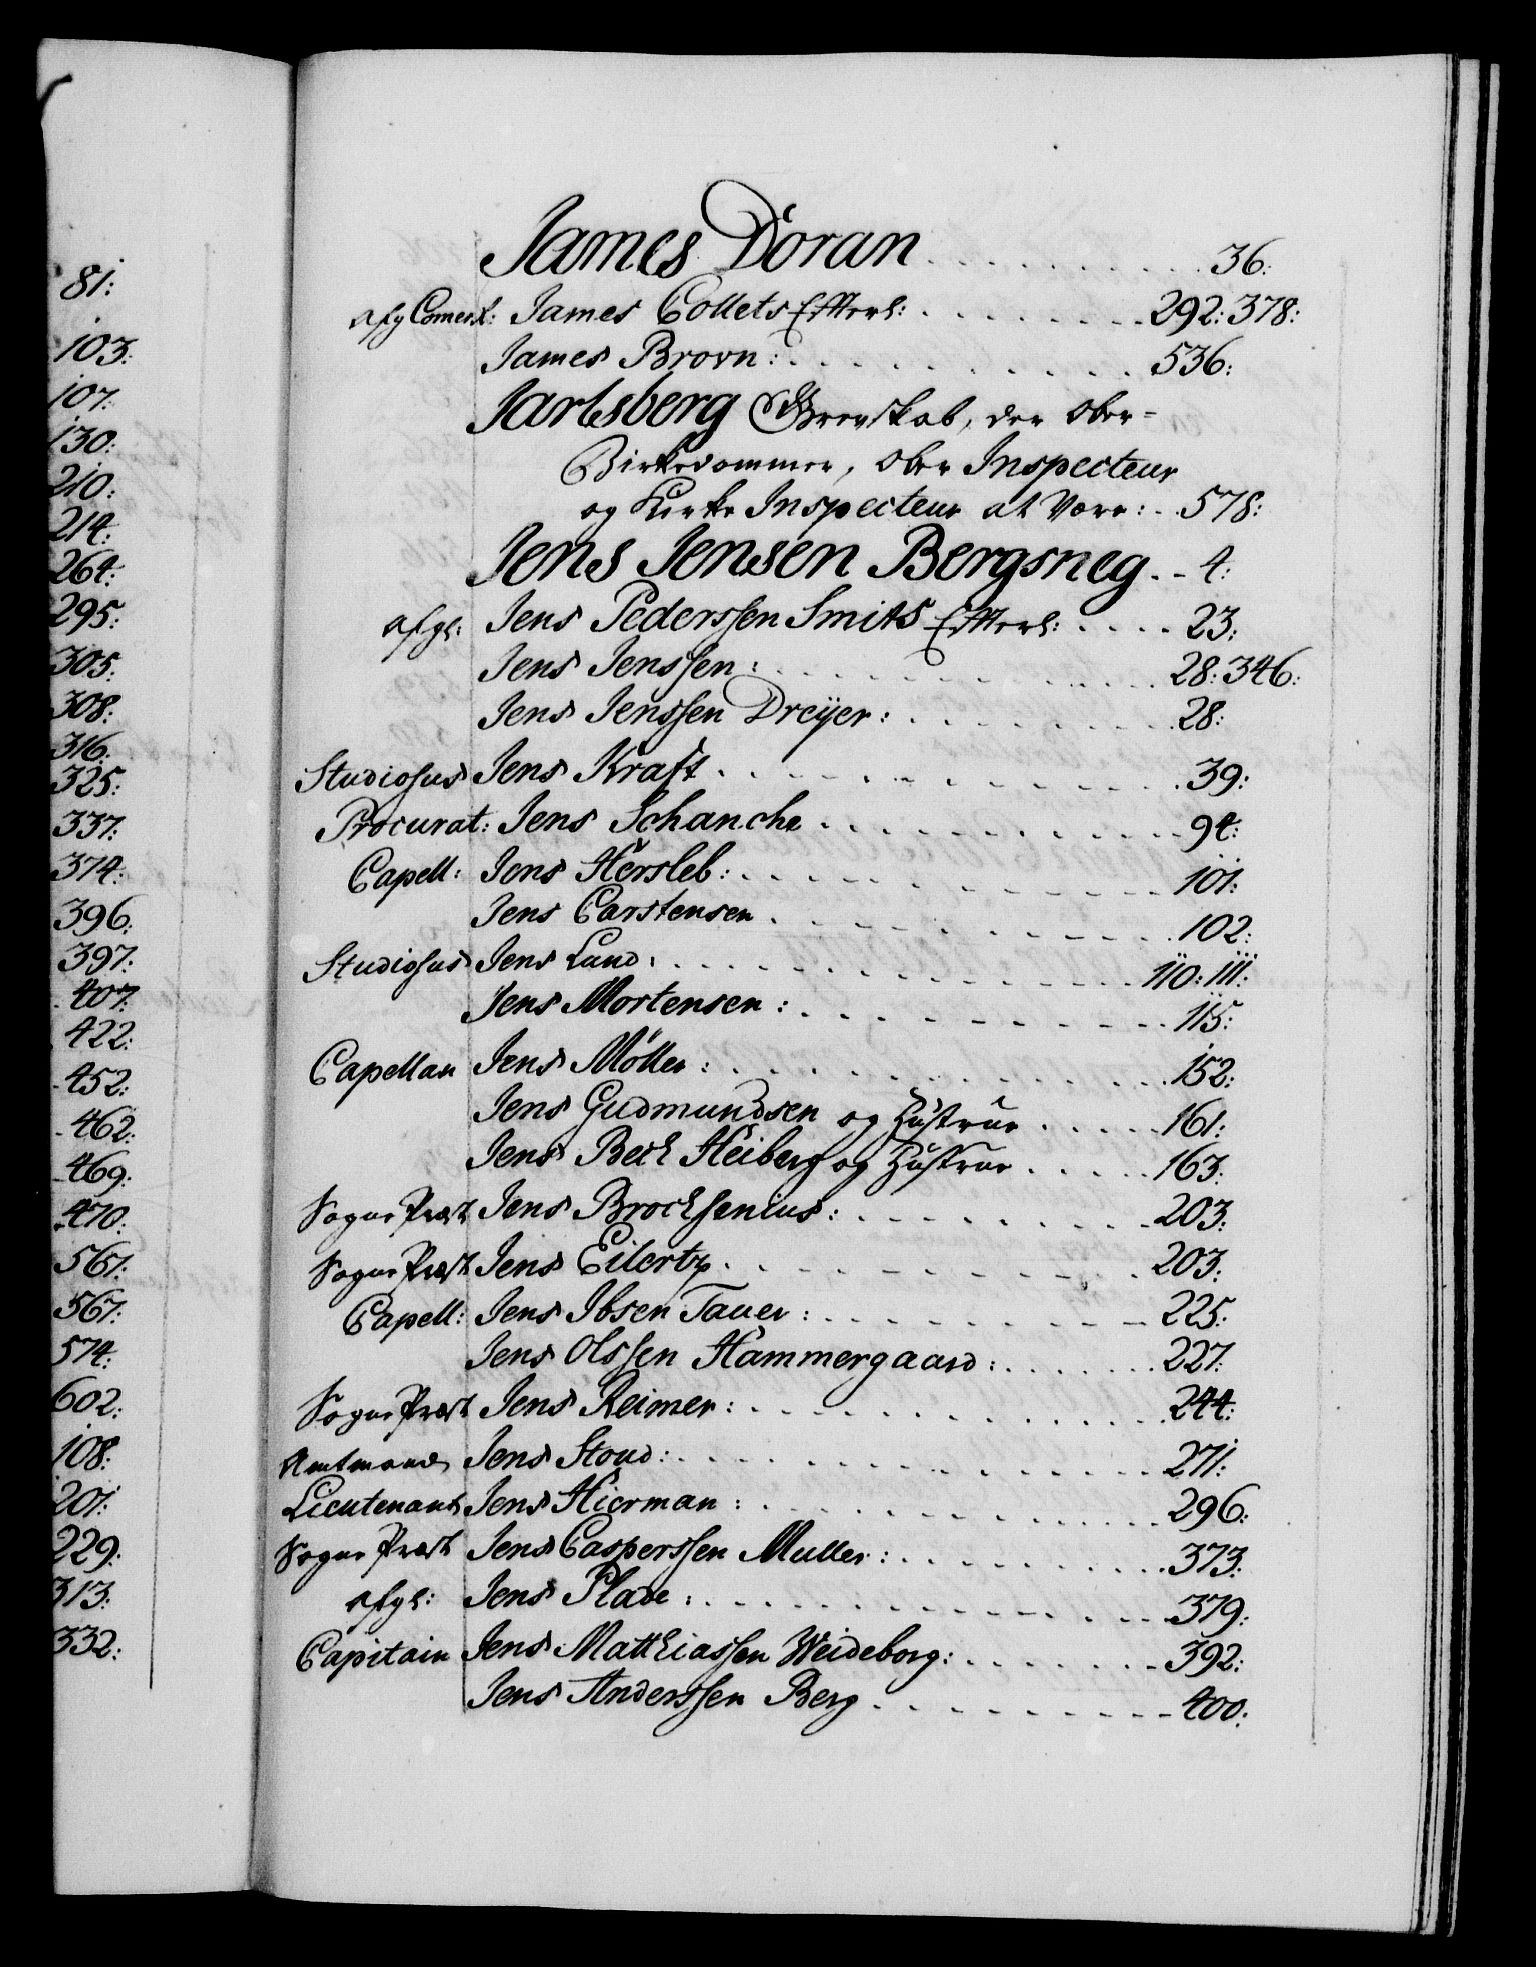 81:
103:
107:
130:
210:
214:
264:
295:
305:
308:
316:
325:
337:
374:
396:
397:
407:
422:
452:
462:
469:
470:
567:
567:
574:
602:
108:
201:
229:
313:
332:
James Doran . . . . . . . . . . 36:
afg Comerl: James Collets Efterl: . . . . . . . . 292: 378:
James Brovn: . . . . . . . . . . 536:
Jarlsberg Grevskab, der Ober-
Birkedommer, Ober Inspecteur
og Kirke Inspecteur at være: . . 578:
Jens Jensen Bergsneg . . 4:
afgl: Jens Pederssen Smits Efterl: . . . . 23:
Jens Jenssen: . . . . . . . . . . 28: 346:
Jens Jenssen Dreÿer: . . . . . . . . 28:
Studiosus Jens Kraft . . . . . . . . . . 39:
Procurat: Jens Schanche . . . . . . . . . . 94:
Capell: Jens Hersleb: . . . . . . . . . . 101:
Jens Carstensen . . . . . . . . . . 102:
Studiosus Jens Lund: . . . . . . . . . . 110: 111:
Jens Mortensen: . . . . . . . . . . 115:
Capellan Jens Möller: . . . . . . . . . . 152:
Jens Gudmundsen og Hustrue . . . . . 161:
Jens Bech Heiberg og Hustrue . . . . . 163:
Sogne Præst Jens Brochsenius: . . . . . . . . . 203:
Sogne Præst Jens Eilertz . . . . . . . . . . 203:
Capell: Jens Ibsen Tauer: . . . . . . . . . 225:
Jens Olssen Hammergaard: . . . . . . . 227:
Sogne Præst Jens Reimer: . . . . . . . . . . 244:
Amtmand Jens Stoud: . . . . . . . . . . 271:
Lieutenant Jens Hierman: . . . . . . . . . . 296:
Sogne Præst Jens Casperssen Muller: . . . . . . . . . 373:
afgl: Jens Plade: . . . . . . . . . . 379:
Capitain Jens Matthiassen Weideborg: . . . . . . . 392:
Jens Anderssen Berg . . . . . . . . . 400: